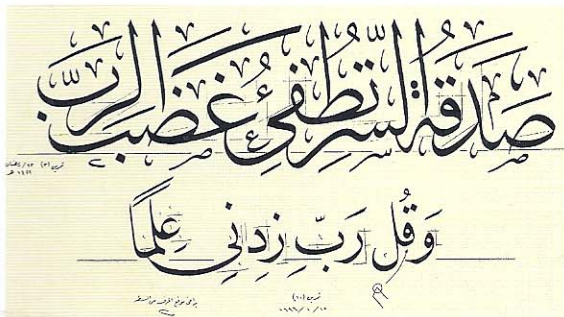 صَدَقَةُ السِّرِّ تُطْفِئُ غَضَبَ الرَّبِّ
وَقُل رَبِّ زِدْنِي عِلْمًا